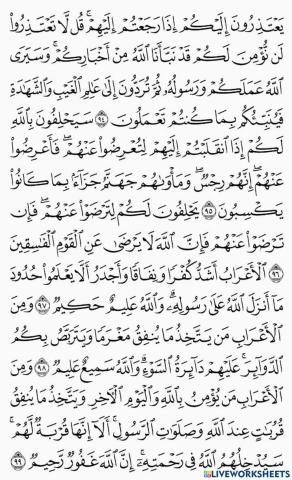 يَعْتَذِرُونَ إِلَيْكُمْ إِذَا رَجَعْتُمْ إِلَيْهِمْ ۚ قُل لَّا تَعْتَذِرُوا۟
لَن نُّؤْمِنَ لَكُمْ قَدْ نَبَّأَنَا ٱللَّهُ مِنْ أَخْبَارِكُمْ ۚ وَسَيَرَى
ٱللَّهُ عَمَلَكُمْ وَرَسُولُهُۥ ثُمَّ تُرَدُّونَ إِلَىٰ عَٰلِمِ ٱلْغَيْبِ وَٱلشَّهَٰدَةِ
فَيُنَبِّئُكُم بِمَا كُنتُمْ تَعْمَلُونَ ٩٤ سَيَحْلِفُونَ بِٱللَّهِ
لَكُمْ إِذَا ٱنقَلَبْتُمْ إِلَيْهِمْ لِتُعْرِضُوا۟ عَنْهُمْ ۖ فَأَعْرِضُوا۟
عَنْهُمْ ۖ إِنَّهُمْ رِجْسٌ ۖ وَمَأْوَىٰهُمْ جَهَنَّمُ جَزَآءًۢ بِمَا كَانُوا۟
يَكْسِبُونَ ٩٥ يَحْلِفُونَ لَكُمْ لِتَرْضَوْا۟ عَنْهُمْ ۖ فَإِن
تَرْضَوْا۟ عَنْهُمْ فَإِنَّ ٱللَّهَ لَا يَرْضَىٰ عَنِ ٱلْقَوْمِ ٱلْفَٰسِقِينَ
٩٦ ٱلْأَعْرَابُ أَشَدُّ كُفْرًا وَنِفَاقًا وَأَجْدَرُ أَلَّا يَعْلَمُوا۟ حُدُودَ
مَآ أَنزَلَ ٱللَّهُ عَلَىٰ رَسُولِهِۦ ۗ وَٱللَّهُ عَلِيمٌ حَكِيمٌ ٩٧ وَمِنَ
ٱلْأَعْرَابِ مَن يَتَّخِذُ مَا يُنفِقُ مَغْرَمًا وَيَتَرَبَّصُ بِكُمُ
ٱلدَّوَآئِرَ ۚ عَلَيْهِمْ دَآئِرَةُ ٱلسَّوْءِ ۗ وَٱللَّهُ سَمِيعٌ عَلِيمٌ ٩٨ وَمِنَ
ٱلْأَعْرَابِ مَن يُؤْمِنُ بِٱللَّهِ وَٱلْيَوْمِ ٱلْءَاخِرِ وَيَتَّخِذُ مَا يُنفِقُ
قُرُبَٰتٍ عِندَ ٱللَّهِ وَصَلَوَٰتِ ٱلرَّسُولِ ۚ أَلَآ إِنَّهَا قُرْبَةٌ لَّهُمْ ۚ
سَيُدْخِلُهُمُ ٱللَّهُ فِى رَحْمَتِهِۦٓ ۗ إِنَّ ٱللَّهَ غَفُورٌ رَّحِيمٌ ٩٩
LIVEWORKSHEETS